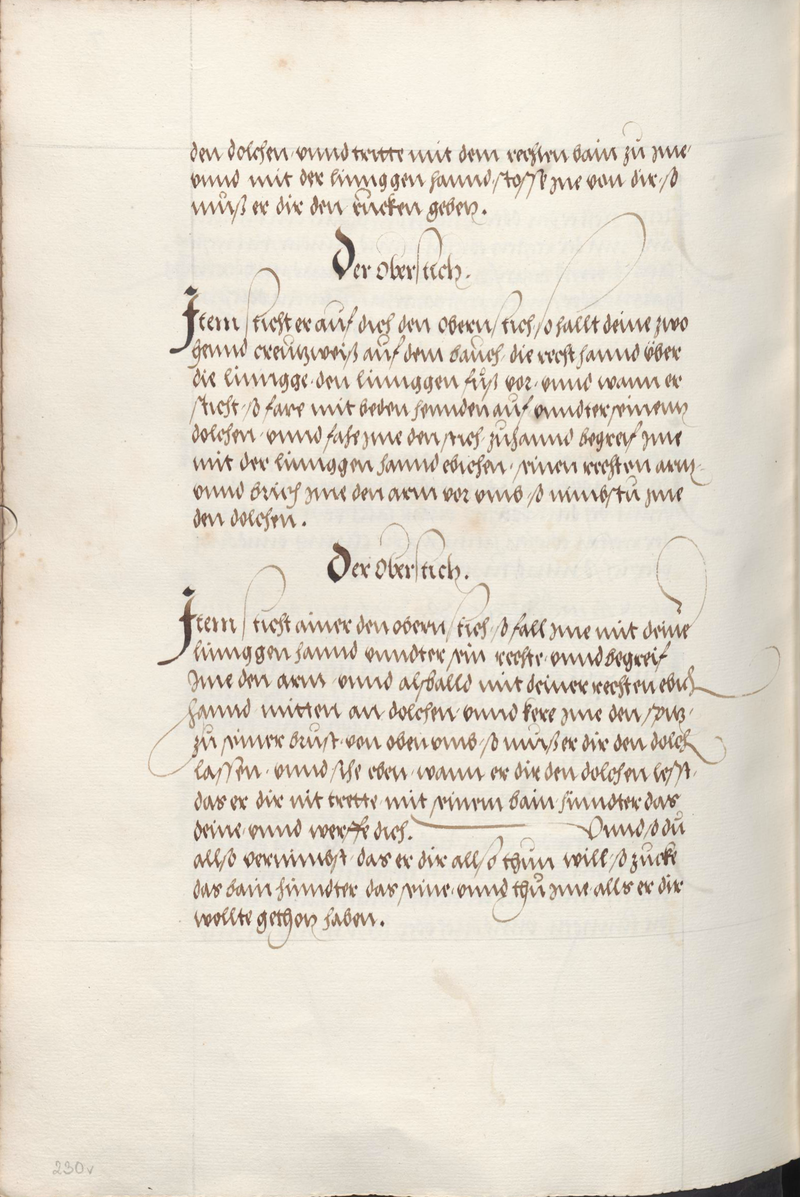 den dolchen · vnnd tritte mit dem rechten bain zů jme
vnnd mit der linnggen hannd · stosß jme von dir · so
můß er dir den růcken geben.
Der öberstich.
Item sticht er auf dich den obern stich · so hallt deine zwo
hennd creutzweiß auf dem bauch · die recht hannd über
die lingge · den linnggen fůß vor · vnnd wann er
sticht · so fare mit beden hennden auf vnndter seinem
dolchen · vnnd fahe jme den stich zůhannd begreif jme
mit der linnggen hannd ebichen · seinen rechten arm
vnnd brich jme den arm vor vmb · so nimbstu jme
den dolchen.
Der öberstich.
Item sticht ainer den obern stich · so fall jme mit deine
linnggen hannd vnndter sein rechte · vnnd begreif
jme den arm · vnnd alsballd mit deiner rechten ebich
hannd mitten an dolchen · vnnd kere jme den spitz ·
zů seiner brust · von oben vmb · so můß er dir den dolch
lassen · vnnd sihe eben · wann er dir den dolchen lesst ·
das er dir nit trette · mit seinem bain hinndter das
deine · vnnd werffe dich. Vnnd so du
allso vernimbst · das er dir allso thůn will · so zucke
das bain hinndter das seine · vnnd thů jme alls er dir
wollte gethon haben.
230v